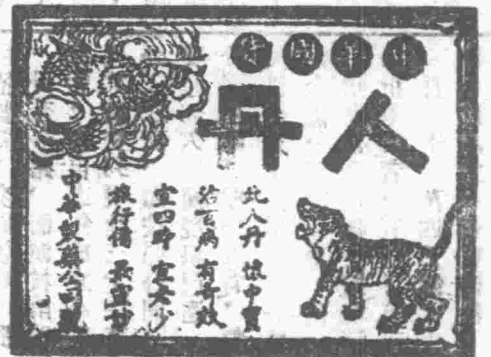 中華國貨
人丹
此人丹 懷中寶
治百病 有奇效
宜四時 宜老少
旅行備 最宜妙
中華製藥公司製